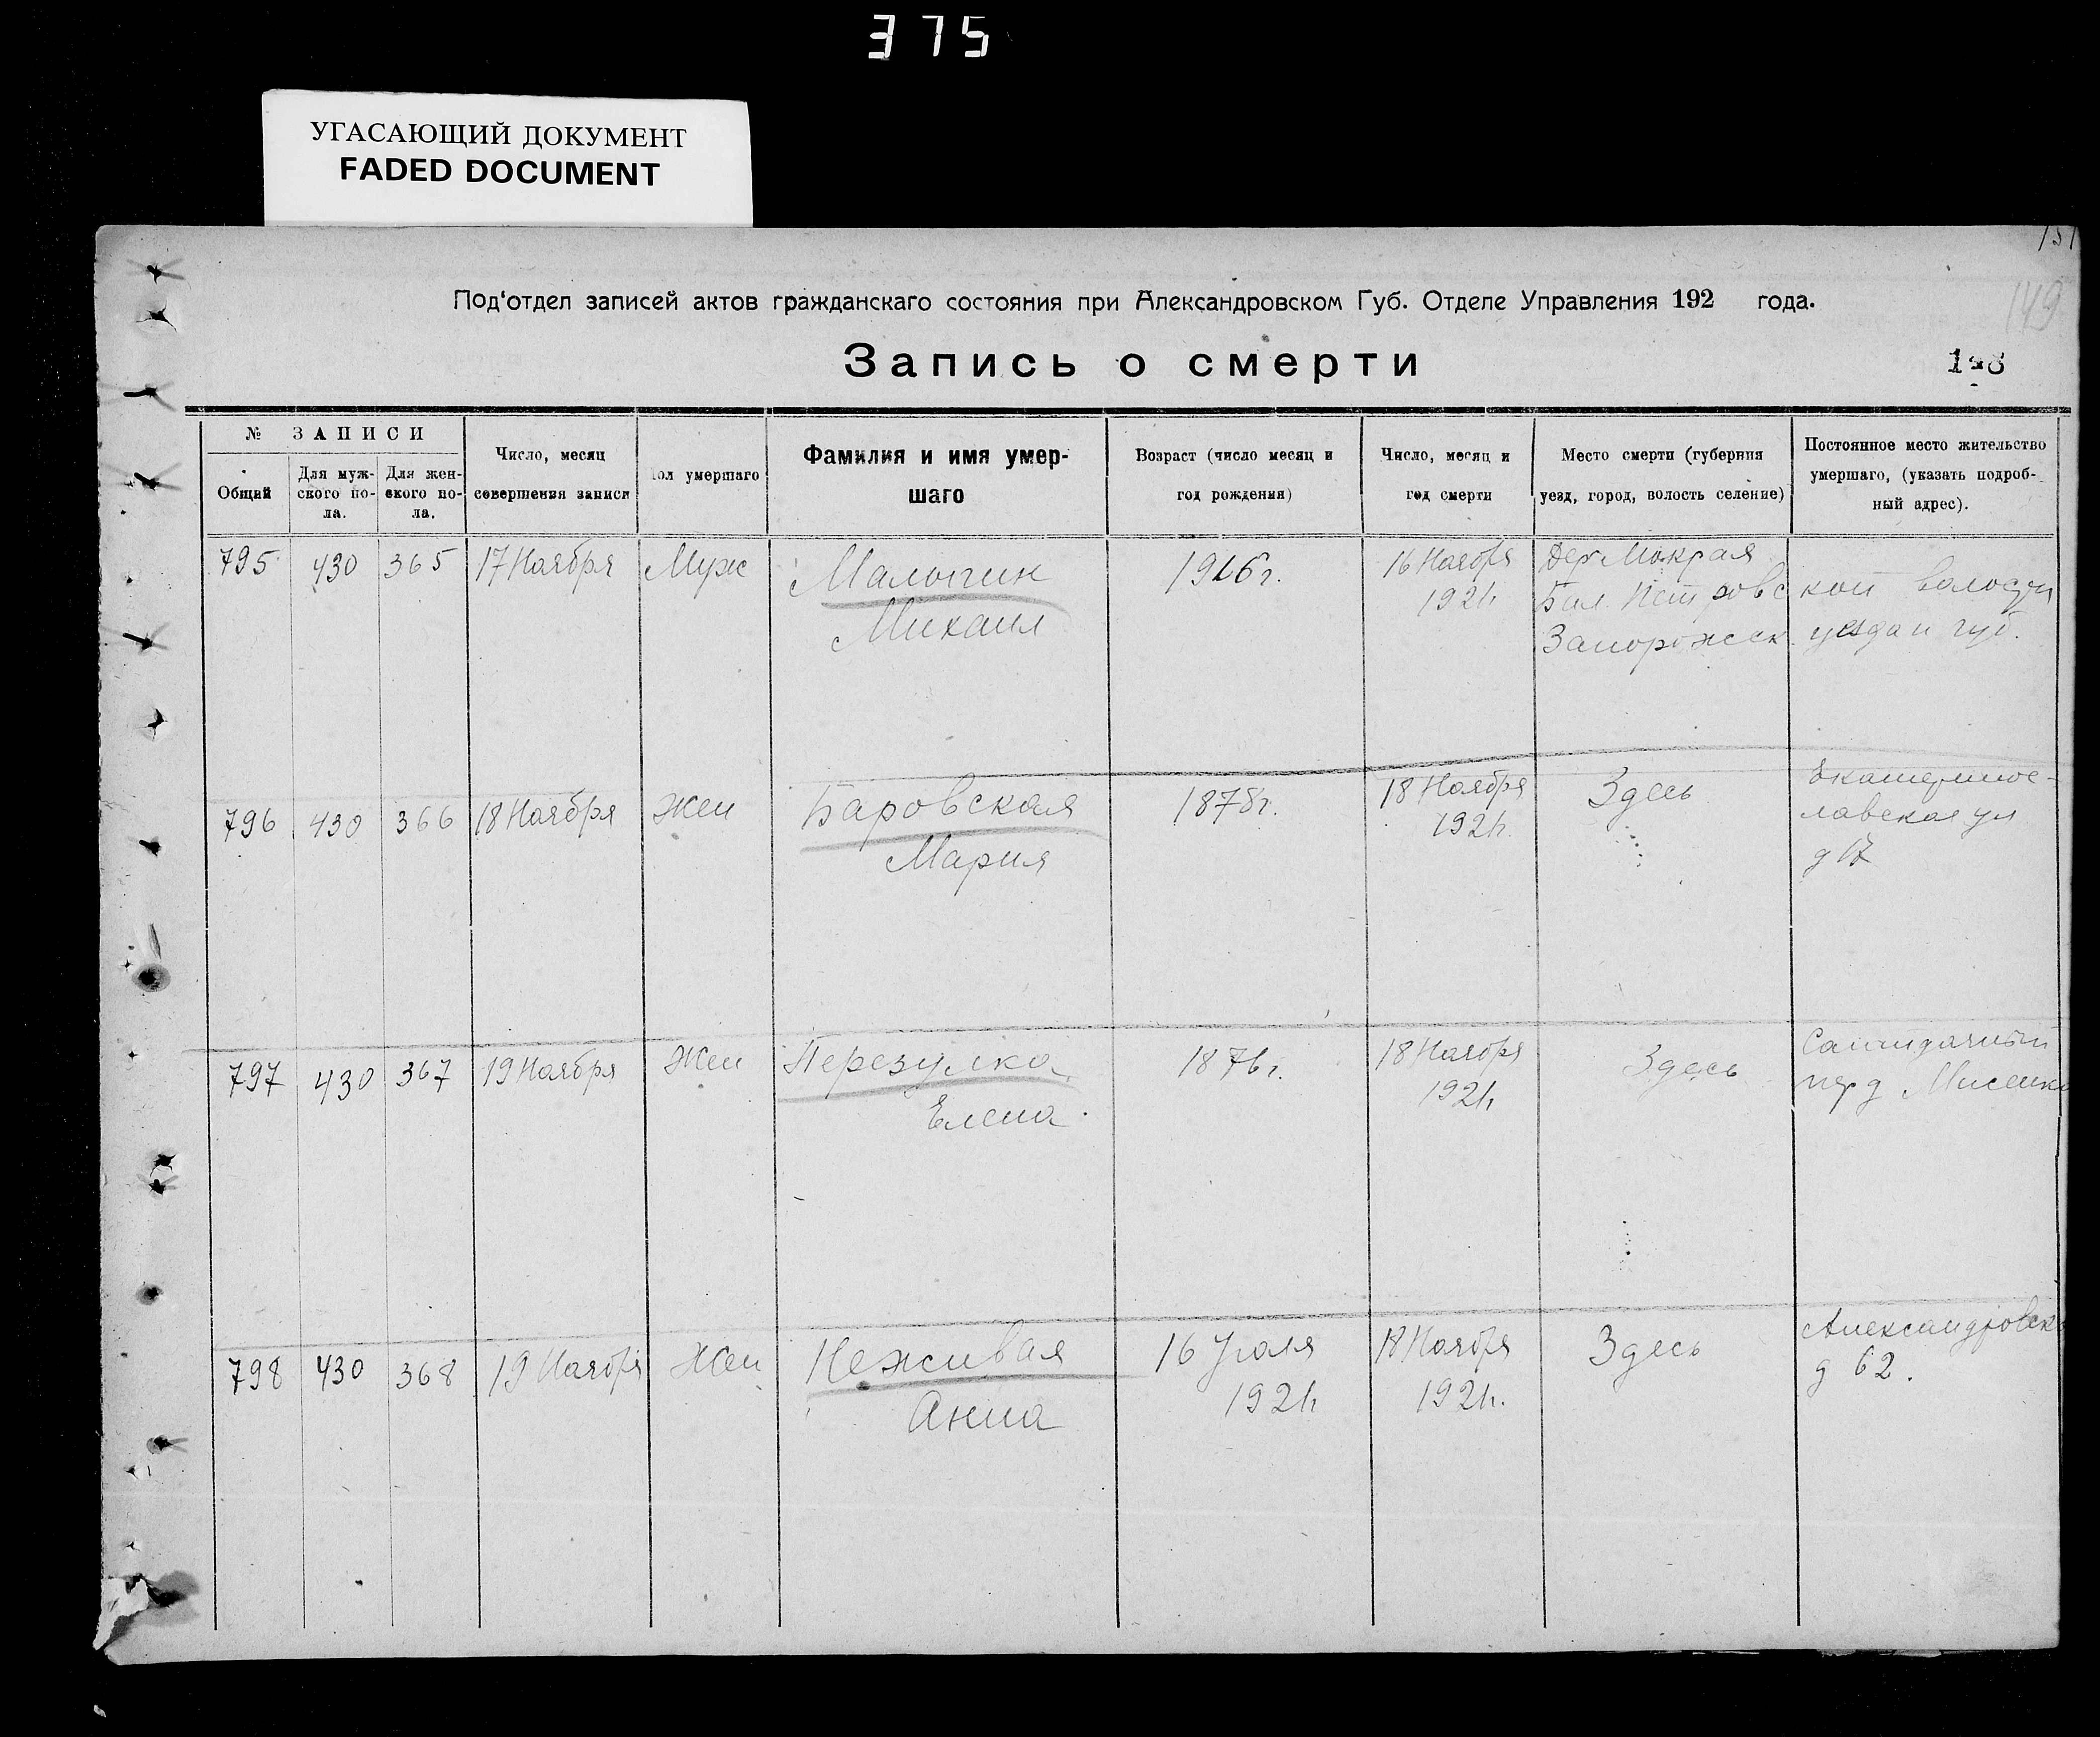 375
УГАСАЮЩИЙ ДОКУМЕНТ
FADED DOCUMENT
151
149
Под'отдел записей актов гражданскаго состояния при Александровском Губ. Отделе Управления 192 года.
Запись о смерти
148
№ ЗАПИСИ
Общий
Для муж-
ского по-
ла.
Для жен-
ского по-
ла.
Число, месяц
совершения записи
Пол умершаго
Фамилия и имя умер-
шаго
Возраст (число месяц и
год рождения)
Число, месяц и
год смерти
Место смерти (губерния
уезд, город, волость селение)
Постоянное место жительство
умершаго, (указать подроб-
ный адрес).
795 430 365 17 Ноября Муж
Михаил
1916 г.
16 Ноября
1921г
Дер Мокрая
Бал. Петровской волости
Запорожск. уезда и губ.
796 430 366 18 Ноября Жен
Баровская
Мария
1878г.
18 Ноября
1921г.
Здесь
Екатеринос-
лавская ул
д 17
797 430 367 19 Ноября Жен
Елена
1876г.
18 Ноября
1921г
Здесь
пер д
798 430 368 19 Ноября Жен
Неживая
Анна
16 Июля
1921г
18 Ноября
1921г.
Здесь
Александровск
д 62.